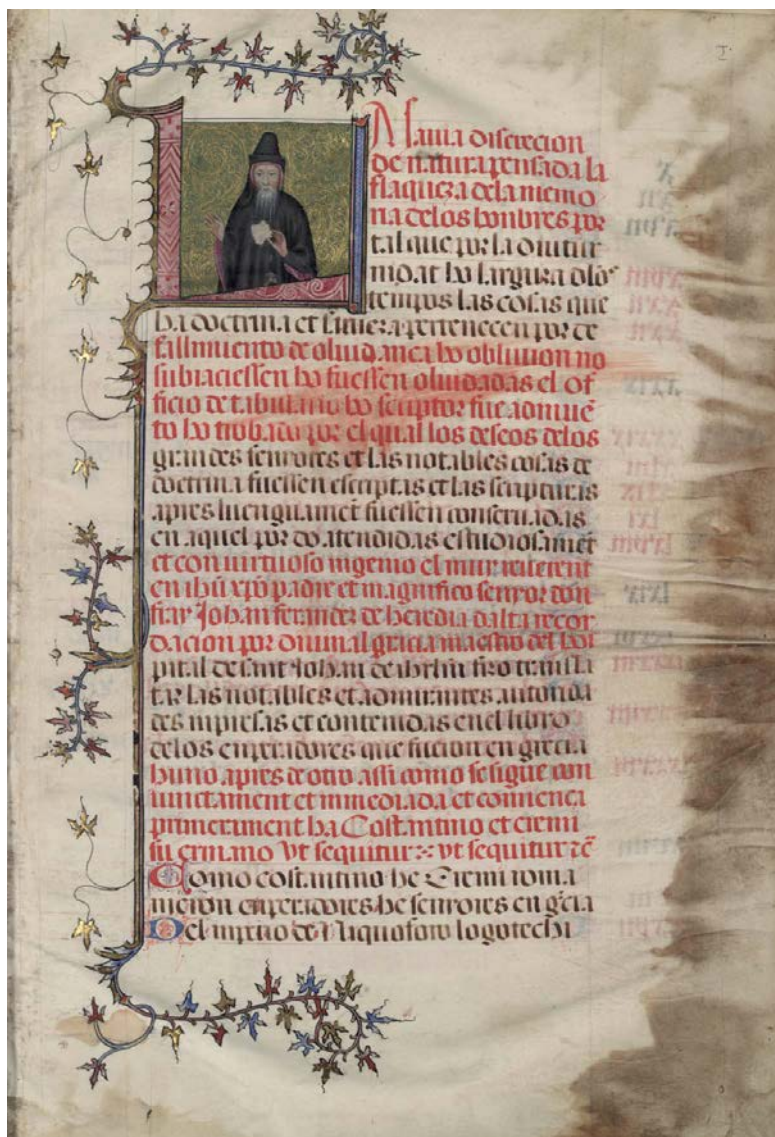 A sauia discrecion
de natura pensada la
flaqueza dela memo
ria delos honbres por
tal que por la diutur
nidat ho largura dlos
tiempos las cosas que
ha doctrina et sciencia pertenecen por de
fallimiento de oluidança ho obliuion no
subiaciessen ho fuessen oluidadas el of
ficio de tabulario ho scriptor fue admuē
to ho trobado por el qual los descos delos
grandes senyores et las notables cosas de
doctrina fuessen escriptas et las scripturas
apres luenguament fuessen conseruadas
en aquel por do atendidas estudiosament
et con virtuoso ingenio el muy reuerent
en ihū xpō padre et magnifico senyor don
fray Johan ferrandez de heredia dalta recor
dacion por diuinal gracia maestro del hos
pital de sant Johan de ihrlm fizo transla
tar las notables et admirantes auctorida
des inpresas et contenidas en el libro
delos enperadores que fueron en grecia
huno apres de otro assi como se sigue con
iunctament et inmediada et comiença
primerament ha Costantino et eremi
su ermano Vt sequitur vt sequitur
Como costantino he Eremi toma
ricion enperadores he senyores en gcia
Del inperio de Niquoforo logotechi